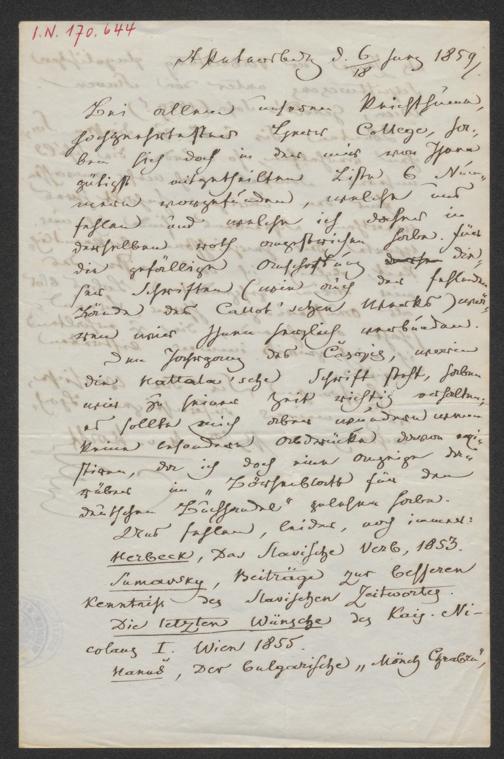 I.N. 170.644
St Petersburg d. 6/18 Juny 1859.
Bei allem unserem Reichthume,
hochgeehrtester Herr College, ha-
ben sich doch in der mir von Ihnen
gütigst mitgetheilten Liste 6 Num-
mern vorgefunden, welche uns
fehlen und welche ich daher in
derselben roth angestrichen habe. Für
die gefällige Anschaffung die-
ser Schriften (wie auch der fehlenden
Bände des Callot'schen Werks) wür-
den wir Ihnen herzlich verbunden.
Den Jahrgang des Časopis, worin
die Hattala'sche Schrift steht, haben
wir zu seiner Zeit richtig erhalten;
es sollte mich aber wundern wenn
keine besondern Abdrücke davon exi-
stiren, da ich doch eine Anzeige da-
rüber im „Börsenblatt für den
deutschen Buchhandel" gelesen habe.
Uns fehlen, leider, noch immer:
Kerbeck, Das Slavische Verb, 1853.
Šumavsky, Beiträge zur besseren
Kenntniß des Slavischen Zeitwortes.
Die letzten Wünsche des Kais. Ni-
colaus I. Wien 1855.
Hanuš, Der bulgarische „Mönch Chrabru",